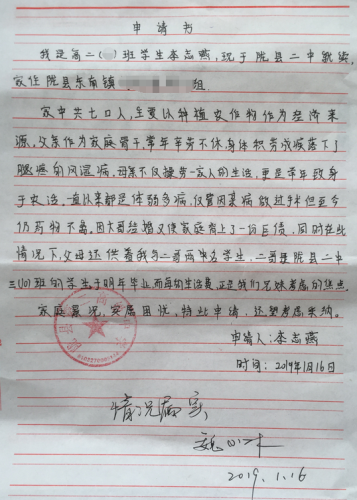 申请书
我是高二( )班学生李志燕,现于陇县二中就读,
家住陇县东南镇 组.
家中共七口人,主要以种植农作物作为经济来
源,父亲作为家庭骨干,常年辛劳不休,身体积劳成疾落下了
腿疾的风湿病,母亲不仅操劳一家人的生活,更是常年致身
于农活,一直以来都是体弱多病,仅管因某病做过手术但至今
仍药物不离。因大哥结婚又使家庭背上了一份巨债,同时在此
情况下,父母还供着我与二哥两个学生,二哥是陇县二中
三(10)班的学生于明年毕业而每的生活费,正是我们兄妹考虑的焦点
家庭景况,实属困忧,特此申请,还望考虑采纳。
申请人:李志燕
时间:2019年1月16日
情况属实
2019.1.16